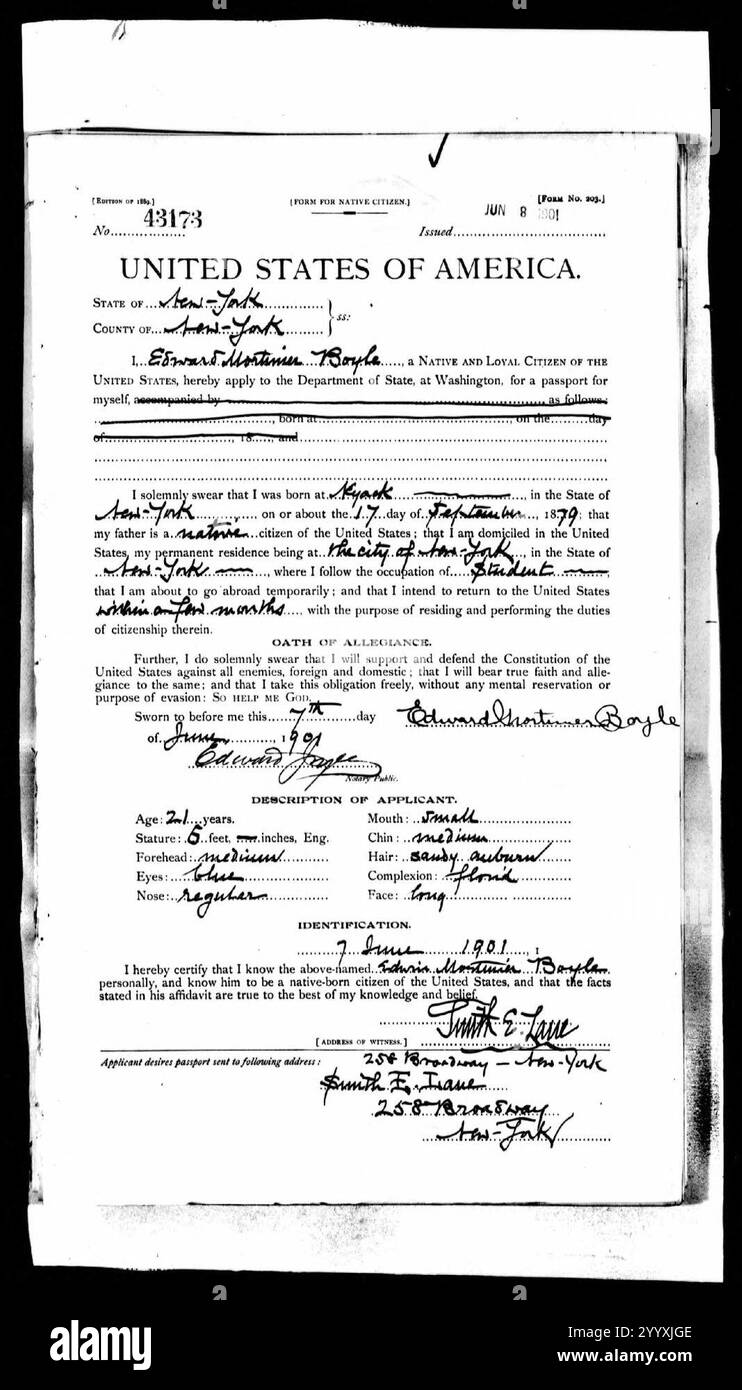 [EDITION OF 1889.] [FORM FOR NATIVE CITIZEN.] [FORM NO. 203.]
No. 43173 Issued JUN 8 1901
UNITED STATES OF AMERICA.
STATE OF New-York
COUNTY OF New-York } ss:
I, Edward Mortimer Boyle, a NATIVE AND LOYAL CITIZEN OF THE
UNITED STATES, hereby apply to the Department of State, at Washington, for a passport for
myself, accompanied by as follows:
, born at, on the day
of, 18, and
I solemnly swear that I was born at Nyack, in the State of
New-York on or about the 17 day of September, 1879; that
my father is a native citizen of the United States; that I am domiciled in the United
States, my permanent residence being at the city of New-York, in the State of
New-York, where I follow the occupation of Student,
that I am about to go abroad temporarily; and that I intend to return to the United States
within a few months, with the purpose of residing and performing the duties
of citizenship therein.
OATH OF ALLEGIANCE.
Further, I do solemnly swear that I will support and defend the Constitution of the
United States against all enemies, foreign and domestic; that I will bear true faith and alle-
giance to the same; and that I take this obligation freely, without any mental reservation or
purpose of evasion: SO HELP ME GOD.
Sworn to before me this 7th day Edward Mortimer Boyle
of June, 1901
Edward
Notary Public.
DESCRIPTION OF APPLICANT.
Age: 21 years. Mouth: small
Stature: 6 feet, inches, Eng. Chin: medium
Forehead: medium Hair: sandy auburn
Eyes: blue Complexion: florid
Nose: regular Face: long
IDENTIFICATION.
7 June 1901,
I hereby certify that I know the above-named Edwin Mortimer Boyle
personally, and know him to be a native-born citizen of the United States, and that the facts
stated in his affidavit are true to the best of my knowledge and belief.
Smith E. Lane
[ADDRESS OF WITNESS.]
258 Broadway - New-York
Applicant desires passport sent to following address:
Smith E. Lane
258 Broadway
New-York
alamy
Image ID: 2YYXJGE
www.alamy.com